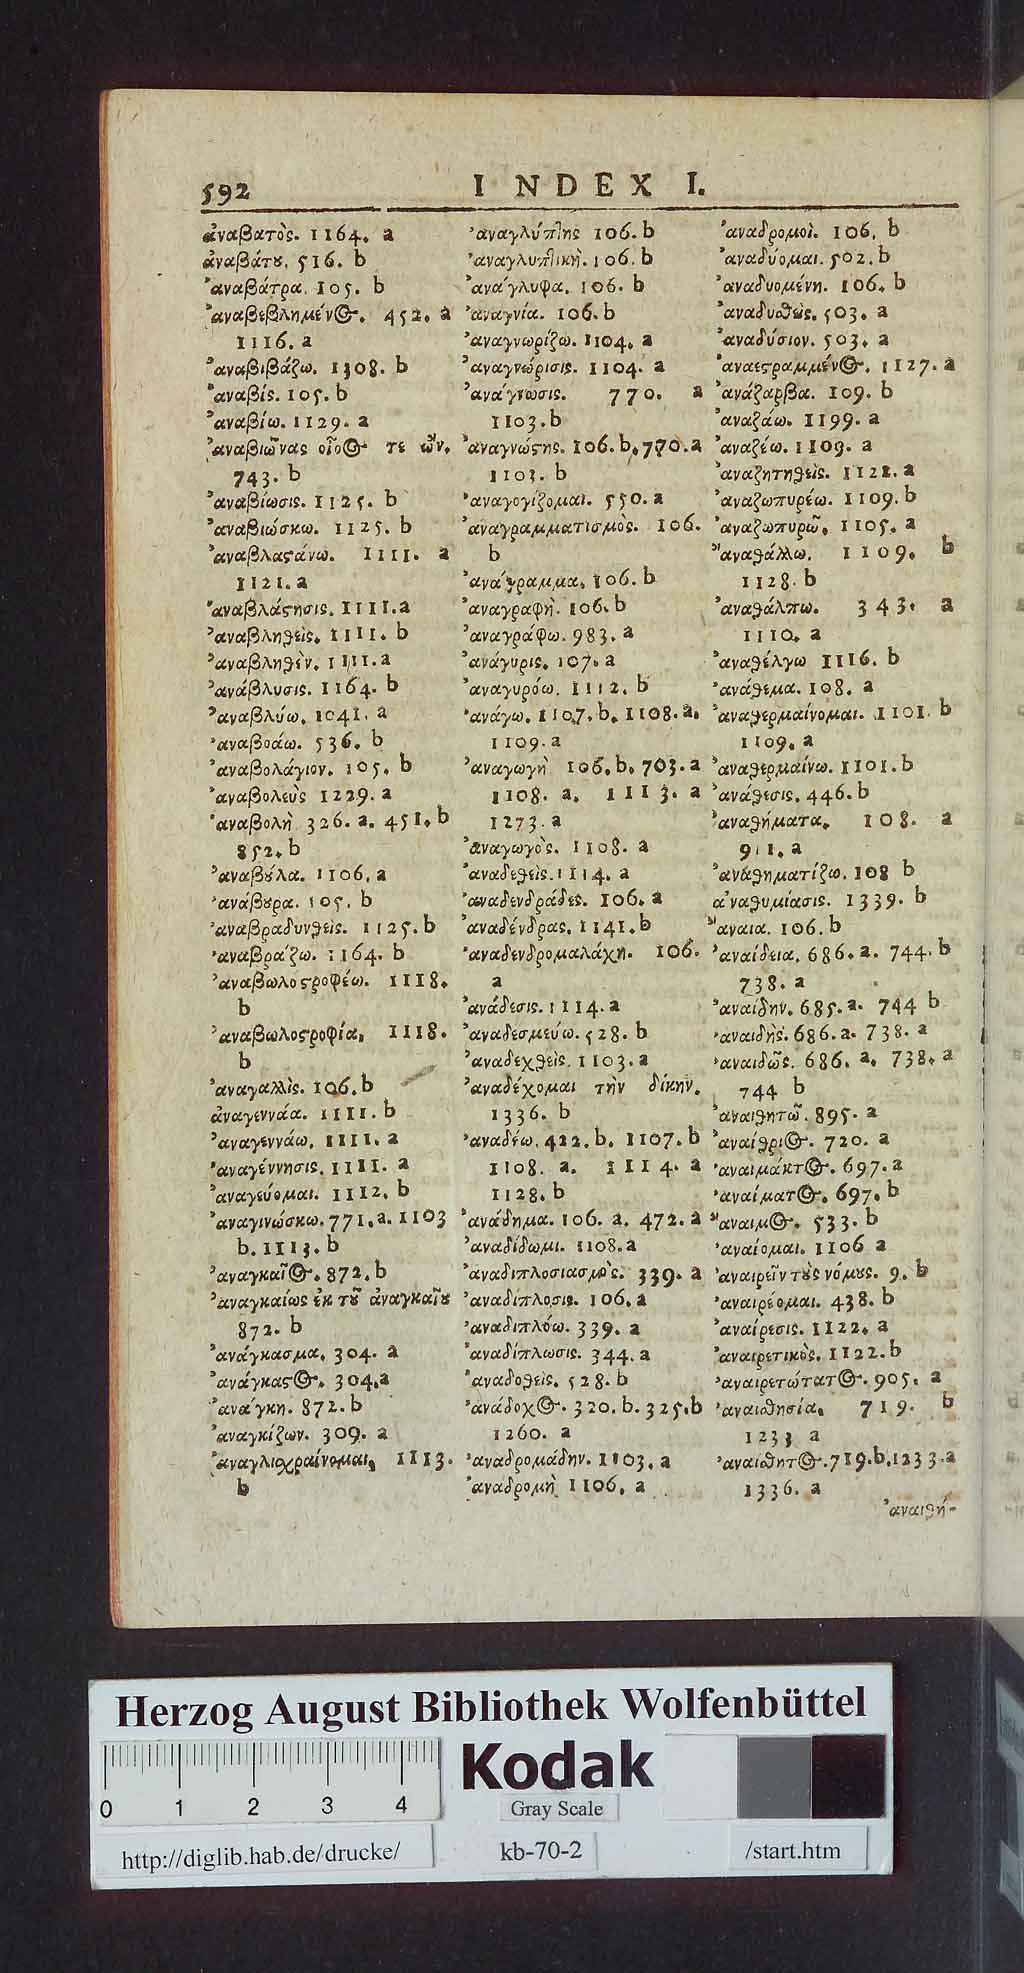 592
INDEX I.
ἀναβατὸς. 1164. a
ἀναβάτȣ. 516. b
ἀναβάτρα. 105. b
ἀναβεβλημένος. 452. a
1116. a
ἀναβιβάζω. 1308. b
ἀναβίς. 105. b
ἀναβίω. 1129. a
ἀναβιῶνας οἷος τε ὢν.
743. b
ἀναβίωσις. 1125. b
ἀναβιώσκω. 1125. b
ἀναβλαϛάνω. 1111. a
1121. a
ἀναβλάϛησις. 1111. a
ἀναβληθεὶς. 1111. b
ἀναβληθὲν. 1111. a
ἀνάβλυσις. 1164. b
ἀναβλύω. 1041. a
ἀναβοάω. 536. b
ἀναβολάγιον. 105. b
ἀναβολεὺς 1229. a
ἀναβολὴ 326. a. 451. b
852. b
ἀναβȣ́λα. 1106. a
ἀνάβȣρα. 105. b
ἀναβραδυνθεὶς. 1125. b
ἀναβράζω. 1164. b
ἀναβωλοϛροφέω. 1118.
b
ἀναβωλοϛροφία, 1118.
b
ἀναγαλλὶς. 106. b
ἀναγεννάα. 1111. b
ἀναγεννάω. 1111. a
ἀναγέννησις. 1111. a
ἀναγεύομαι. 1112. b
ἀναγινώσκω. 771. a. 1103
b. 1113. b
ἀναγκαῖος. 872. b
ἀναγκαίως ἐκ τȣ͂ ἀναγκαίȣ
872. b
ἀνάγκασμα. 304. a
ἀνάγκαϛος. 304. a
ἀνάγκη. 872. b
ἀναγκίζων. 309. a
ἀναγλιοχραίνομαι, 1113.
b
ἀναγλύπτης 106. b
ἀναγλυπτικὴ. 106. b
ἀνάγλυφα. 106. b
ἀναγνία. 106. b
ἀναγνωρίζω. 1104. a
ἀναγνώρισις. 1104. a
ἀνάγνωσις. 770. a
1103. b
ἀναγνώϛης. 106. b. 770. a
1103. b
ἀναγογίζομαι. 550. a
ἀναγραμματισμὸς. 106.
b
ἀνάγραμμα. 106. b
ἀναγραφὴ. 106. b
ἀναγράφω. 983. a
ἀνάγυρις. 107. a
ἀναγυρόω. 1112. b
ἀνάγω. 1107. b. 1108. a.
1109. a
ἀναγωγὴ 106. b. 703. a
1108. a. 1113. a
1273. a
ἀναγωγὸς. 1108. a
ἀναδεθεὶς. 1114. a
ἀναδενδράδες. 106. a
ἀναδένδρας. 1141. b
ἀναδενδρομαλάχη. 106.
a
ἀνάδεσις. 1114. a
ἀναδεσμεύω. 528. b
ἀναδεχθεὶς. 1103. a
ἀναδέχομαι τὴν δίκην.
1336. b
ἀναδέω. 422. b. 1107. b
1108. a. 1114. a
1128. b
ἀνάδημα. 106. a. 472. a
ἀναδίδωμι. 1108. a
ἀναδιπλοσιασμὸς. 339. a
ἀναδίπλοσις. 106. a
ἀναδιπλόω. 339. a
ἀναδίπλωσις. 344. a
ἀναδοθεὶς. 528. b
ἀνάδοχος. 320. b. 325. b
1260. a
ἀναδρομάδην. 1103. a
ἀναδρομὴ 1106. a
ἀναδρομοὶ. 106. b
ἀναδύομαι. 502. b
ἀναδυομένη. 106. b
ἀναδυθεὶς. 503. a
ἀναδύσιον. 503. a
ἀναεϛραμμένος. 1127. a
ἀνάζαρβα. 109. b
ἀναζάω. 1199. a
ἀναζέω. 1109. a
ἀναζητηθεὶς. 1121. a
ἀναζωπυρέω. 1109. b
ἀναζωπυρῶ. 1105. a
ἀναθάλλω. 1109. b
1128. b
ἀναθάλπω. 343. a
1110. a
ἀναθέλγω 1116. b
ἀνάθεμα. 108. a
ἀναθερμαίνομαι. 1101. b
1109. a
ἀναθερμαίνω. 1101. b
ἀνάθεσις. 446. b
ἀναθήματα. 108. a
911. a
ἀναθηματίζω. 108 b
ἀναθυμίασις. 1339. b
ἄναια. 106. b
ἀναίδεια. 686. a. 744. b
738. a
ἀναίδην. 685. a. 744 b
ἀναιδὴς. 686. a. 738. a
ἀναιδῶς. 686. a. 738. a
744 b
ἀναιθητῶ. 895. a
ἀναίθριος. 720. a
ἀναιμάκτος. 697. a
ἀναίματος. 697. b
ἄναιμος. 533. b
ἀναίομαι. 1106 a
ἀναιρεῖν τȣ̀ς νόμȣς. 9. b
ἀναιρέομαι. 438. b
ἀναίρεσις. 1122. a
ἀναιρετικὸς. 1122. b
ἀναιρετώτατος. 905. a
ἀναισθησία. 719. b
1233 a
ἀναισθητος. 719. b. 1233. a
1336. a
ἀναισθή-
Herzog August Bibliothek Wolfenbüttel
0 1 2 3 4
Kodak
Gray Scale
http://diglib.hab.de/drucke/
kb-70-2
/start.htm